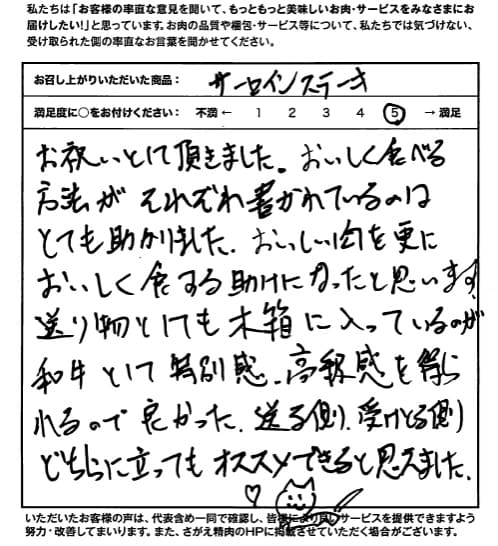 私たちは「お客様の率直な意見を聞いて、もっともっと美味しいお肉・サービスをみなさまにお
届けしたい!」と思っています。お肉の品質や梱包・サービス等について、私たちでは気づけない、
受け取られた側の率直なお言葉を聞かせてください。
お召し上がりいただいた商品： サーロインステーキ
満足度に○をお付けください： 不満 ← 1 2 3 4 5 → 満足
お祝いとして頂きました。おいしく食べる
方法がそれぞれ書かれているのは
とても助かりました。おいしい肉を更に
おいしく食する助けになったと思います。
送り物としても木箱に入っているのが
和牛として特別感、高級感を得ら
れるので良かった。送る側、受けとる側
どちらに立ってもオススメできると思えました。
いただいたお客様の声は、代表含め一同で確認し、皆様により良いサービスを提供できますよう
努力・改善してまいります。また、さがえ精肉のHPに掲載させていただく場合がございます。